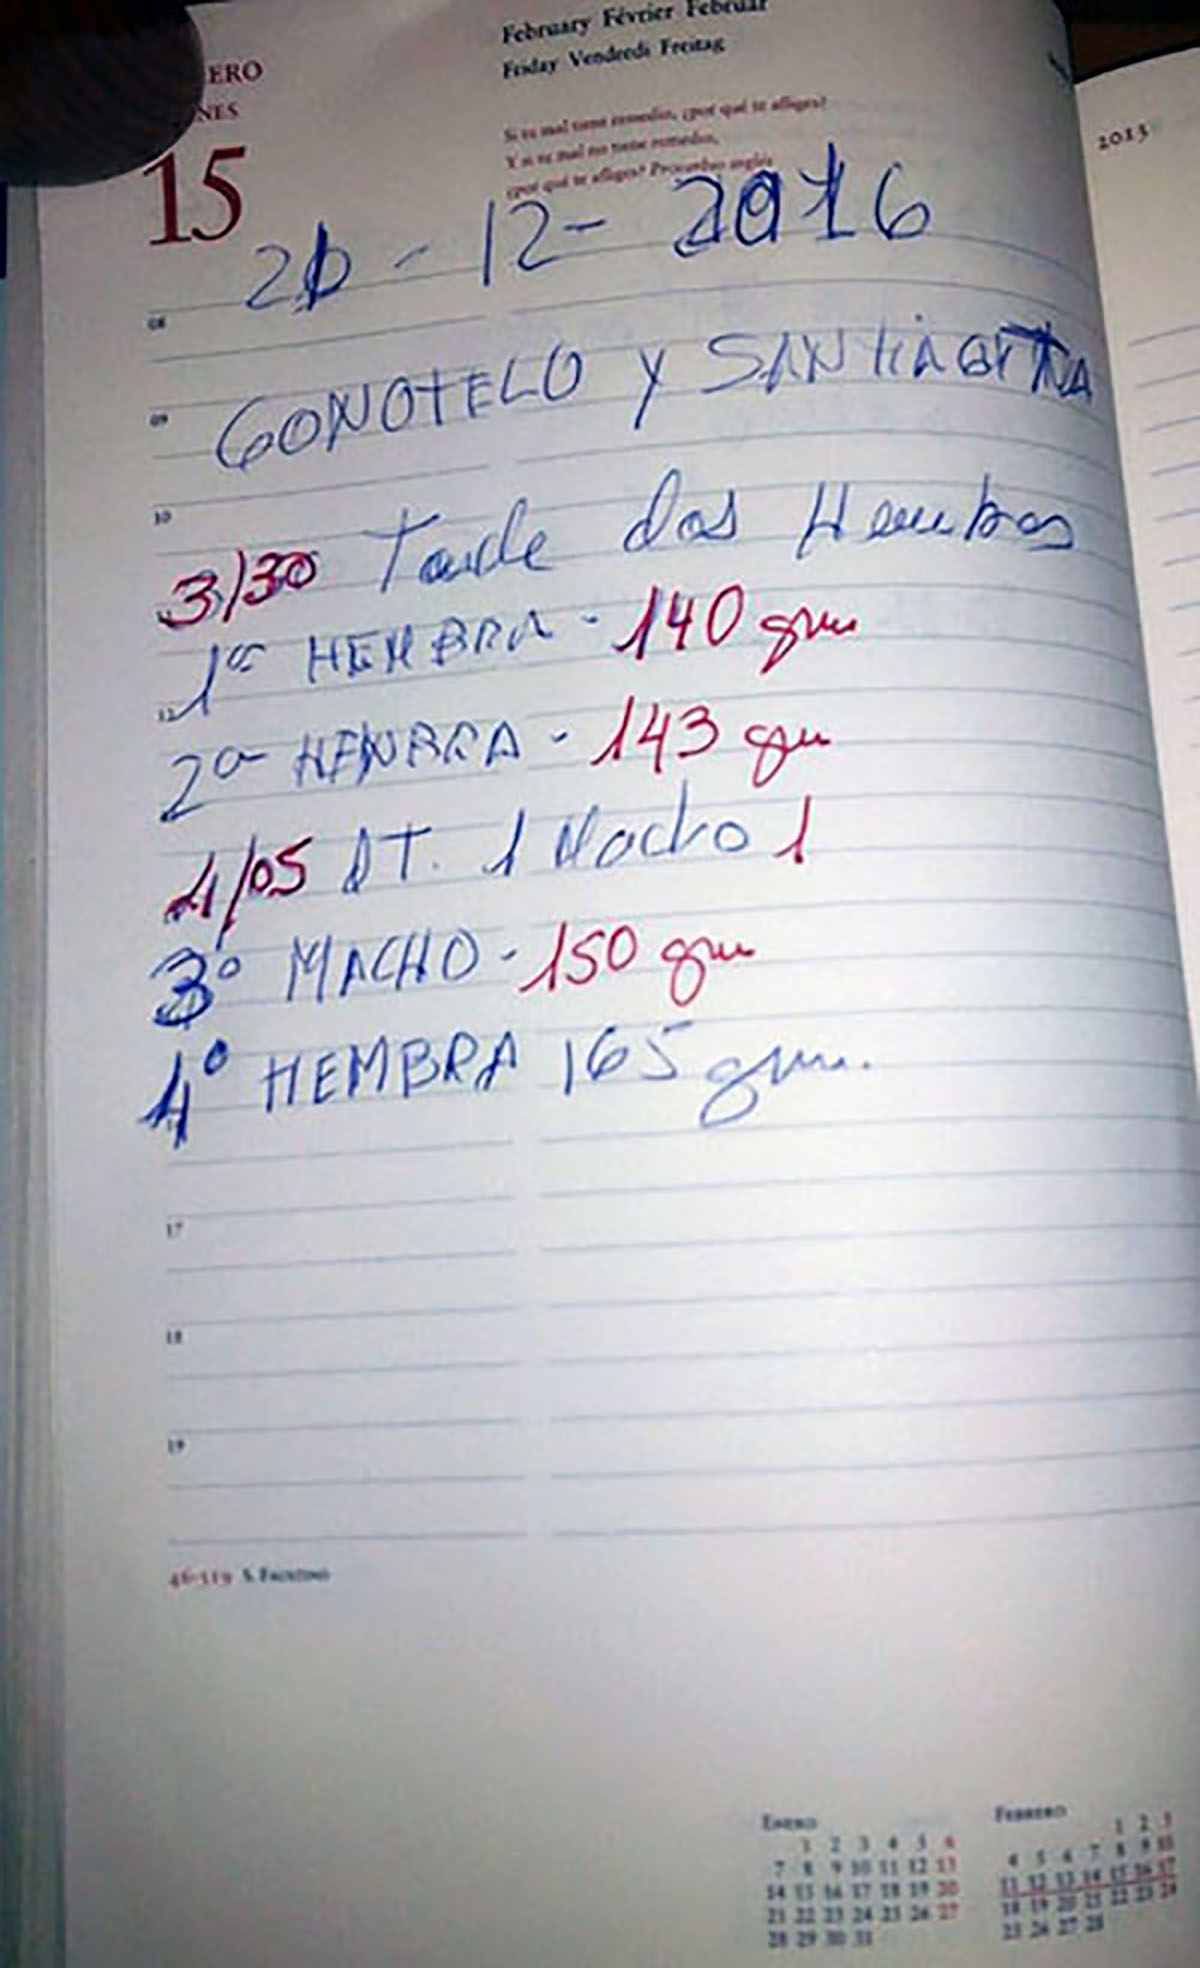 ERO
NES
15
February Février Februar
Friday Vendredi Freitag
Si tu mal tiene remedio, ¿por qué te afliges?
Y si tu mal no tiene remedio,
¿por qué te afliges? Proverbio inglés
2013
12- 2016
08
GONOTELO y SANTIAGUITINA
09
10
3/30 Tarde dos Hembras
1ª HEMBRA - 140 grm
12
2ª HENBRA - 143 grm
4/05 DT. 1 Macho 1
3º MACHO - 150 grm
4º HEMBRA 165 grm.
17
18
19
46-319 S. Faustino
Enero
1 2 3 4 5 6
7 8 9 10 11 12 13
14 15 16 17 18 19 20
21 22 23 24 25 26 27
28 29 30 31
Febrero
1 2 3
4 5 6 7 8 9 10
11 12 13 14 15 16 17
18 19 20 21 22 23 24
25 26 27 28